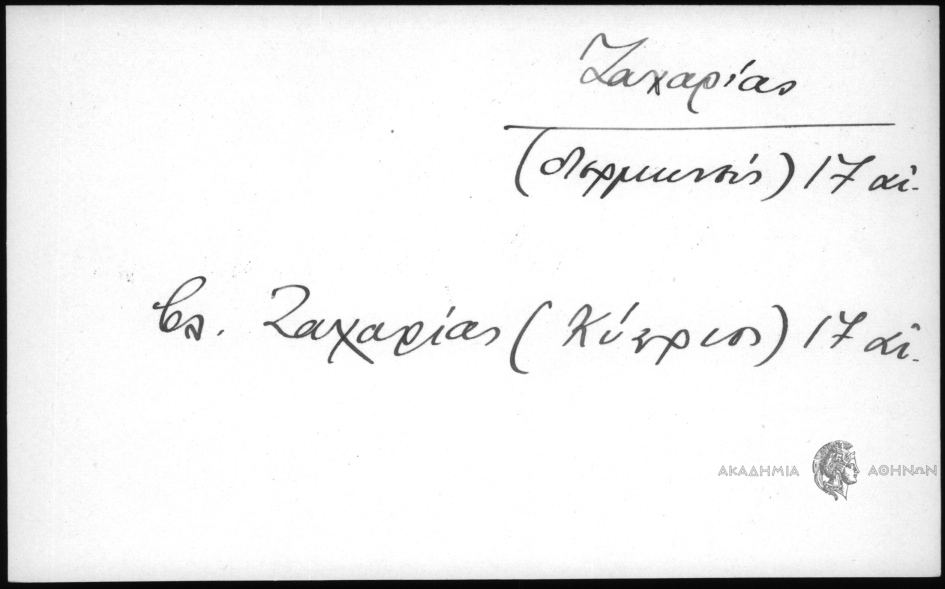 Ζαχαρίας
(Θερμιανός) 17 αἰ.
βλ. Ζαχαρίας (Κύπριος) 17 αἰ.
ΑΚΑΔΗΜΙΑ ΑΘΗΝΩΝ